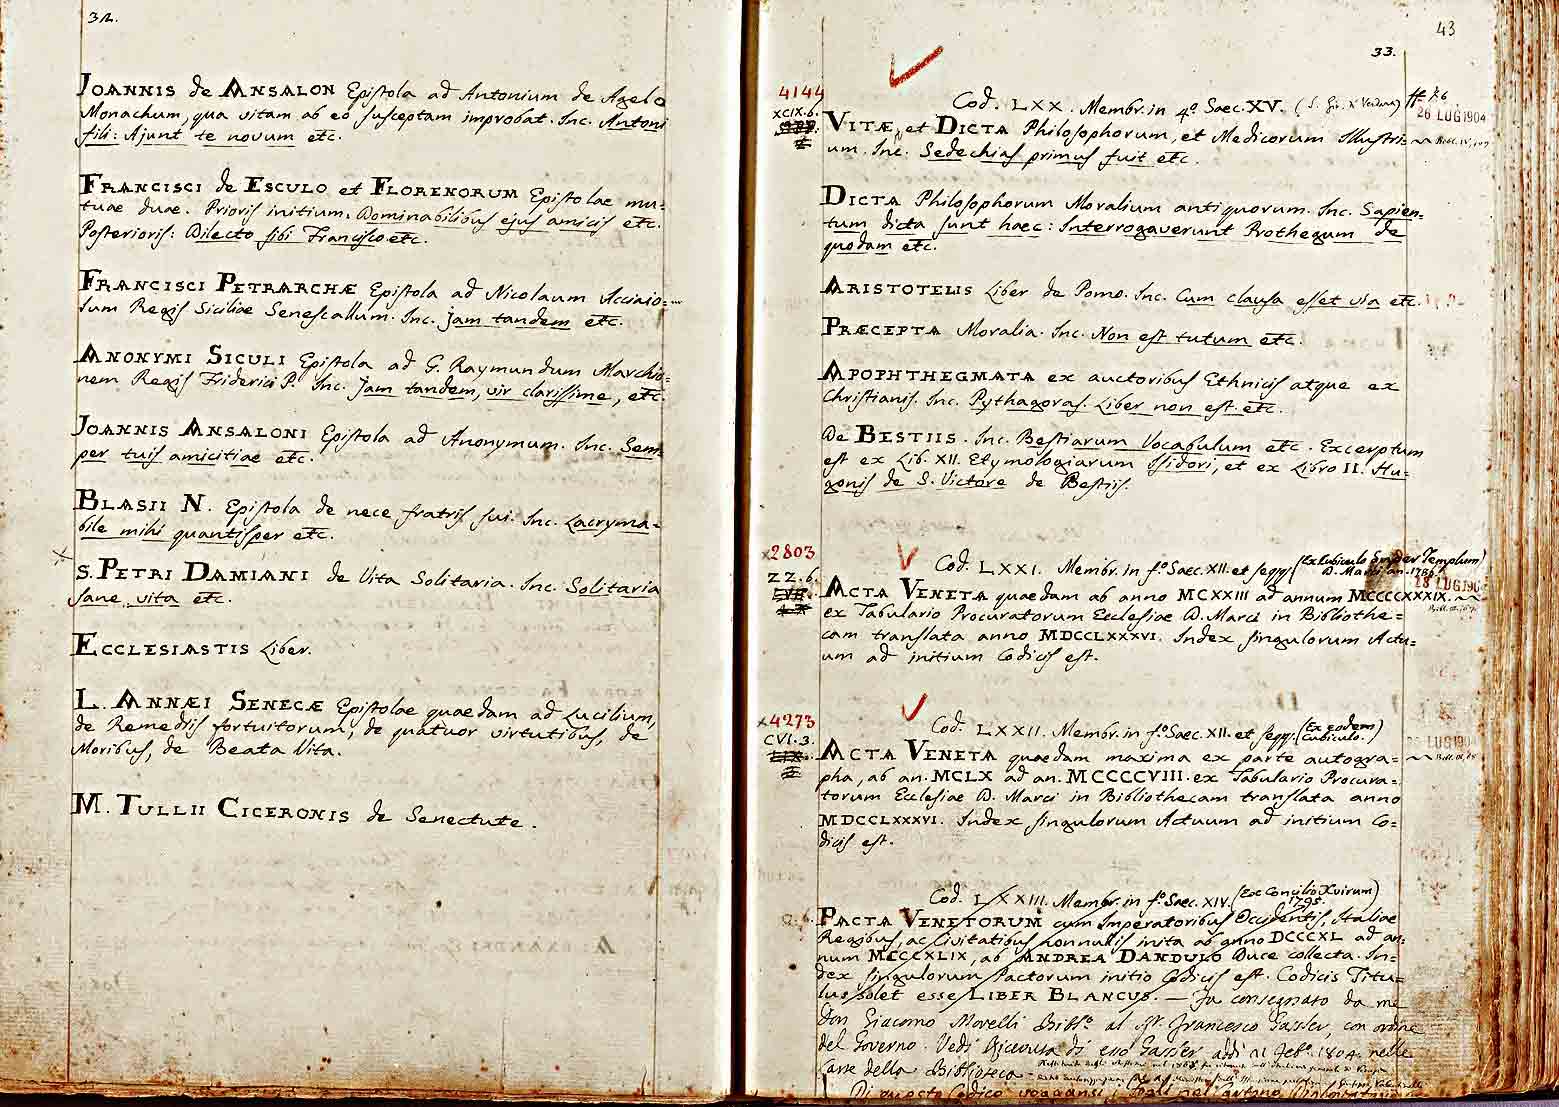 32.
JOANNIS de ANSALON Epistola ad Antonium de Agelo
Monachum, qua vitam ab eo susceptam improbat. Inc. Antoni
fili: Ajunt te novum etc.
FRANCISCI de ESCULO et FLORENORUM Epistolae mu=
tuae duae. Prioris initium: Dominabilibus ejus amicis etc.
Posterioris: Dilecto sibi Francisco etc.
FRANCISCI PETRARCHÆ Epistola ad Nicolaum Acciaio=
lum Regis Siciliae Senescallum. Inc. Jam tandem etc.
ANONYMI SICULI Epistola ad G. Raymundum Marchio=
nem Regis Friderici P. Inc. Jam tandem, vir clarissime, etc.
JOANNIS ANSALONI Epistola ad Anonymum. Inc. Sem=
per tuis amicitiae etc.
BLASII N. Epistola de nece fratris sui. Inc. Lacryma=
bile mihi quantisper etc.
S. PETRI DAMIANI de Vita Solitaria. Inc. Solitaria
sane vita etc.
ECCLESIASTIS Liber.
L. ANNÆI SENECÆ Epistolae quaedam ad Lucilium,
de Remediis fortuitorum, de quatuor virtutibus, de
Moribus, de Beata Vita.
M. TULLII CICERONIS de Senectute.
43
33.
4144
XCIX.6.
Cod. LXX. Membr. in 4º Saec. XV.
26 LUG 1904
VITÆ, et DICTA Philosophorum, et Medicorum Illustri=
um. Inc. Sedechias primus fuit etc.
DICTA Philosophorum Moralium antiquorum. Inc. Sapien=
tum dicta sunt haec: Interrogaverunt Prothegum de
quodam etc.
ARISTOTELIS Liber de Pomo. Inc. Cum clausa esset via etc.
PRÆCEPTA Moralia. Inc. Non est tutum etc.
APOPHTHEGMATA ex auctoribus Ethnicis atque ex
Christianis. Inc. Pythagoras. Liber non est etc.
De BESTIIS. Inc. Bestiarum Vocabulum etc. Excerptum
est ex Lib. XII. Etymologiarum Isidori, et ex Libro II. Hu=
gonis de S. Victore de Bestiis.
x2803
ZZ.6.
Cod. LXXI. Membr. in fº Saec. XII. et seqq. (Ex Cubiculo Super Templum
D. Marci an. 1786.)
18 LUG 190
ACTA VENETA quaedam ab anno MCXXIII ad annum MCCCCXXXIX.
ex Tabulario Procuratorum Ecclesiae D. Marci in Bibliothe=
cam translata anno MDCCLXXXVI. Index singulorum Actu=
um ad initium Codicis est.
x4273
CVI.3.
Cod. LXXII. Membr. in fº Saec. XII. et seqq. (Ex eodem
Cubiculo.)
LUG 190
ACTA VENETA quaedam maxima ex parte autogra=
pha, ab an. MCLX ad an. MCCCCVIII. ex Tabulario Procura=
torum Ecclesiae D. Marci in Bibliothecam translata anno
MDCCLXXXVI. Index singulorum Actuum ad initium Co=
dicis est.
Cod. LXXIII. Membr. in fº Saec. XIV. (Ex Concilio Xvirum)
1795.
PACTA VENETORUM cum Imperatoribus Occidentis, Italiae
Regibus, ac Civitatibus nonnullis inita ab anno DCCCXL ad an=
num MCCCXLIX, ab ANDREA DANDULO Duce collecta. In=
dex singulorum Pactorum initio Codicis est. Codicis Titu=
lus solet esse LIBER BLANCUS. — Fu consegnato da me
Don Giacomo Morelli Biblº al Sr. Francesco Gassler, con ordine
del Governo. Vedi Ricevuta di esso Gassler addì 21 Febº. 1804. nelle
Carte della Biblioteca
Di questo Codice